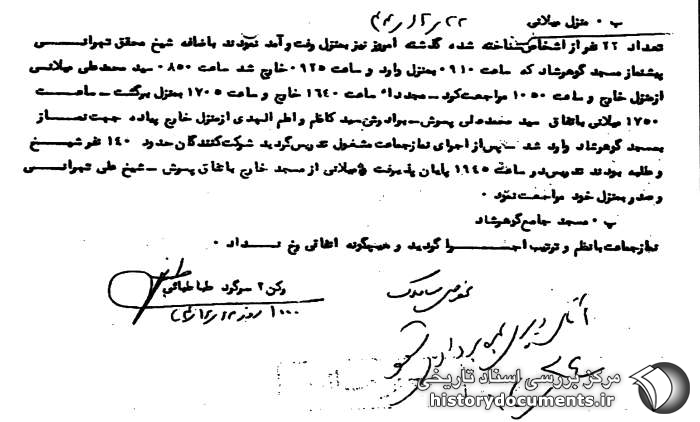 پ ۰ منزل میلانی ۴۴ر۲ار۲۲
تعداد ۲۲ نفر از اشخاص شناخته شده گذشته امروز نیز بمنزل رفت و آمد نمودند باضافه شیخ محقق تهرانی
پیشنماز مسجد گوهرشاد که ساعت ۰۹۱۰ بمنزل وارد و ساعت ۰۹۲۵ خارج شد ساعت ۰۸۵۰ سید محمدعلی میلانی
ازمنزل خارج و ساعت ۱۰۵۰ مراجعت کرد ـ مجددا" ساعت ۱۶۴۰ خارج و ساعت ۱۷۰۵ بمنزل برگشت ـ ساعت
۱۷۵۰ میلانی باتفاق سید محمدعلی پسرش ـ برادرش سید کاظم و اطم الهدی ازمنزل خارج پیاده جهت نماز
بمسجد گوهرشاد وارد شد ـ پس از اجرای نمازجماعت مشغول تدریس گردید شرکت کنندگان حدود ۱۴۰ نفر شیخ
و طلبه بودند تدریس در ساعت ۱۹۴۵ پایان پذیرفت و میلانی از مسجد خارج باتفاق پسرش ـ شیخ علی تهرانی
و صدر بمنزل خود مراجعت نمود ۰
پ ۰ مسجد جامع گوهرشاد
نمازجماعت بانظم و ترتیب اجرا گردید و هیچگونه اتفاقی رخ نداد ۰
رکن ۲ سرگرد طباطبائی
۱۰۰۰ روز
آقای دبیری بهره برداری
مرکز بررسی اسناد تاریخی
historydocuments.ir